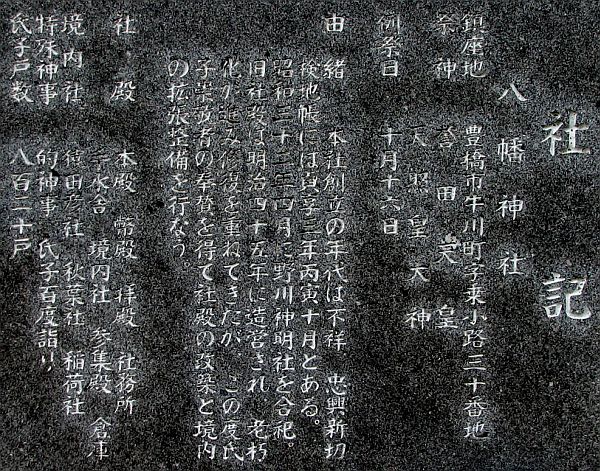 社記
八幡神社
鎮座地 豊橋市牛川町字乗小路三十番地
祭神 誉田天皇
天照皇大神
例祭日 十月十六日
由緒 本社創立の年代は不祥 忠興新切
検地帳には貞享三年丙寅十月とある。
昭和三十二年四月に野川神明社を合祀。
旧社殿は明治四十五年に造営され 老朽
化が進み修復を重ねてきたが この度氏
子崇敬者の奉賛を得て社殿の改築と境内
の拡張整備を行なう。
社殿 本殿 幣殿 拝殿 社務所
手水舎 境内社 参集殿 倉庫
境内社 猿田彦社 秋葉社 稲荷社
特殊神事 的神事 氏子百度詣り
氏子戸数 八百二十戸